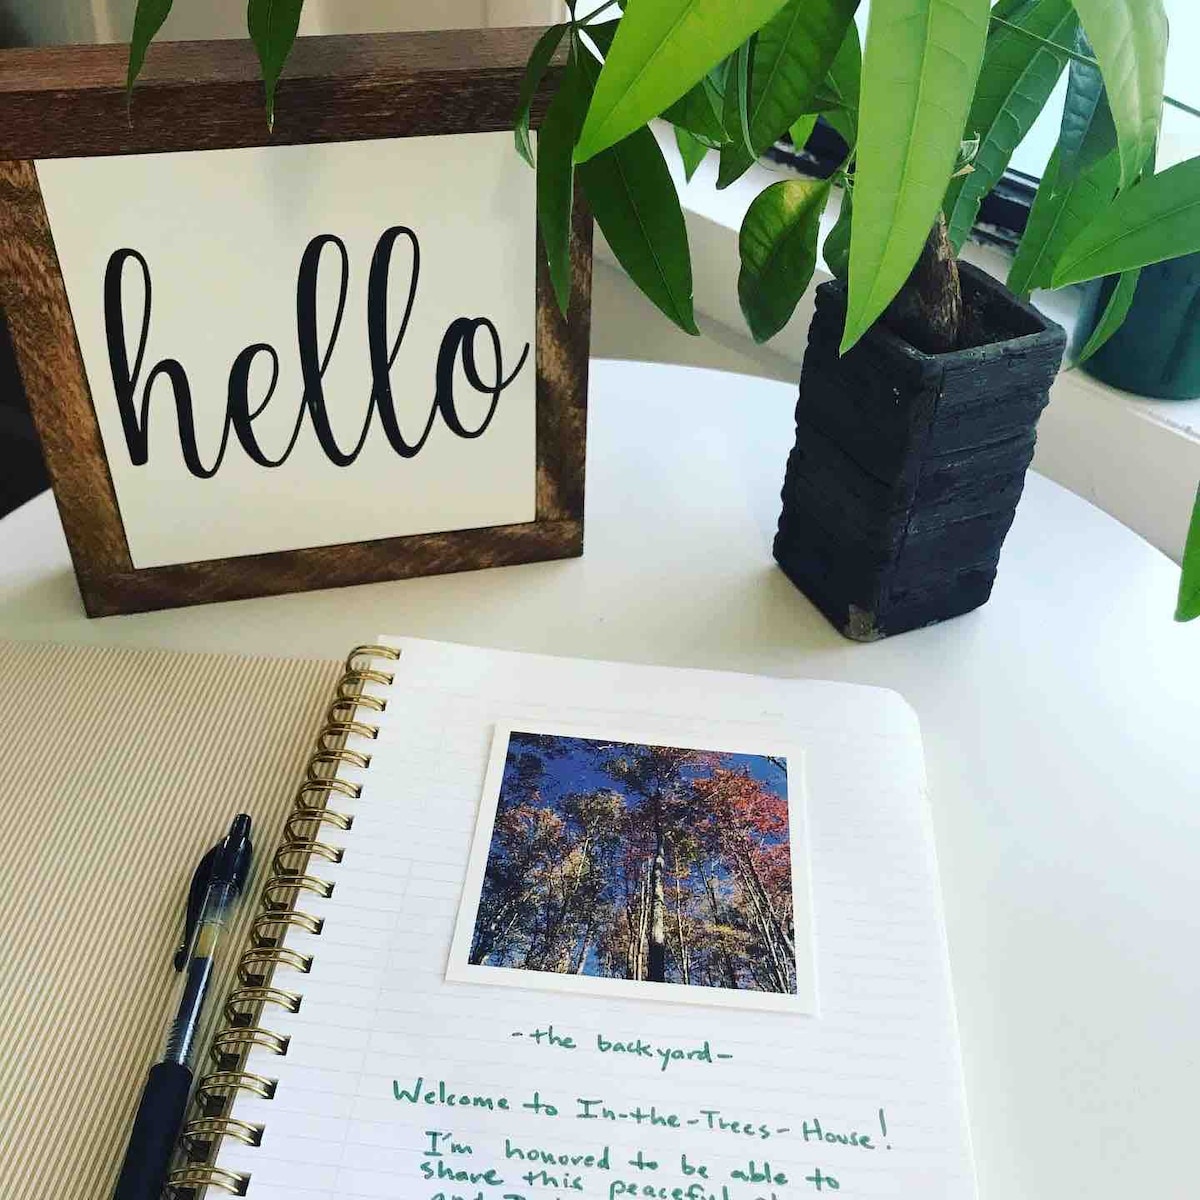 hello
-the backyard-
Welcome to In-the-Trees-House!
I'm honored to be able to
share this peaceful
and